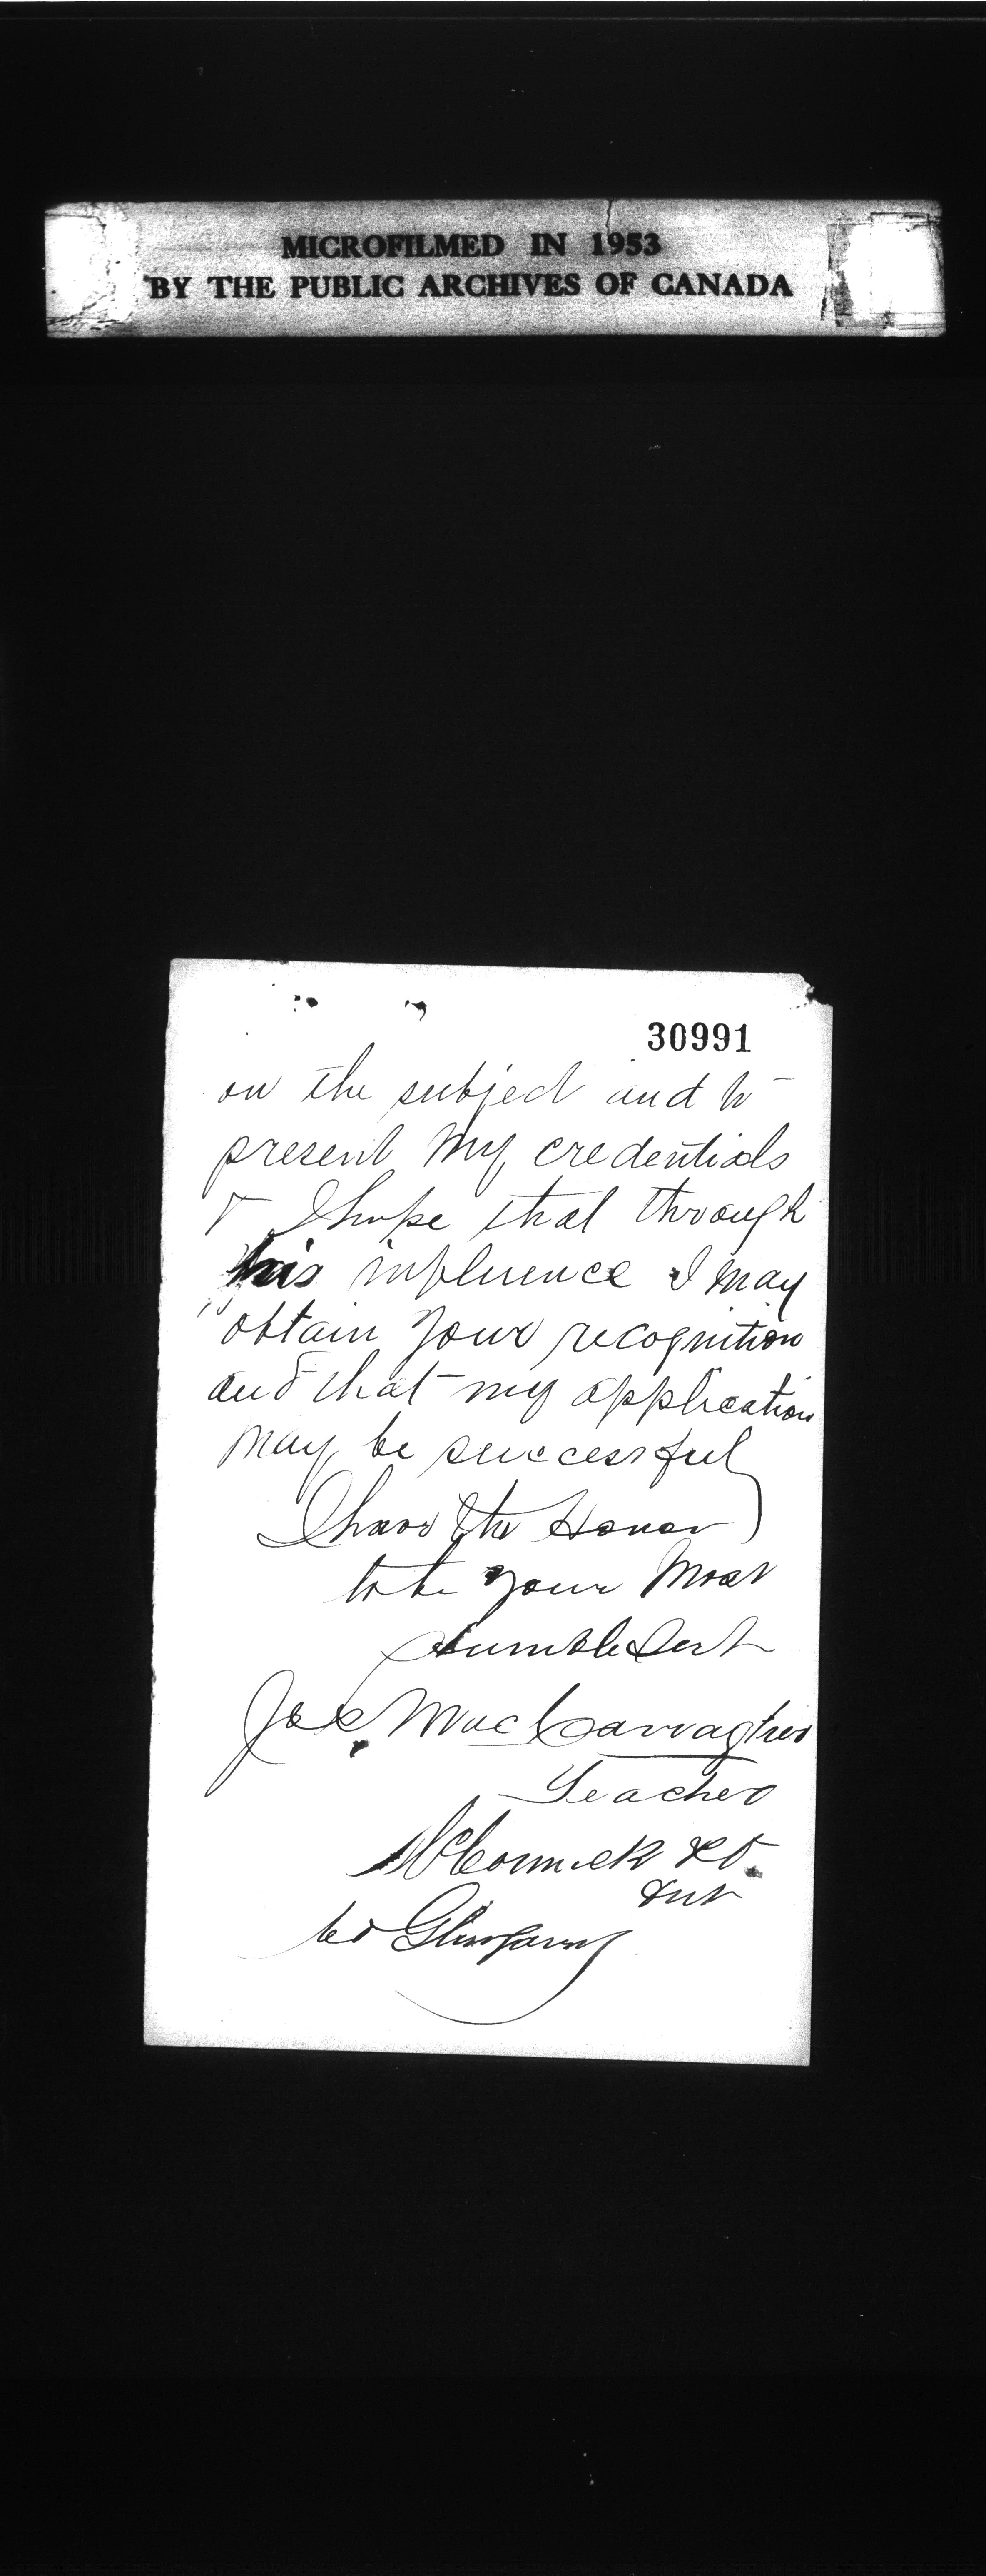 MICROFILMED IN 1953
BY THE PUBLIC ARCHIVES OF CANADA
30991
on the subject and to
present my credentials
& I hope that through
his influence I may
obtain your recognition
and that my application
may be successful
I have the Honor
to be your Most
Humble Servt
Jas MacCarragher
Teacher
McCormick P.O.
Ont
Co Glengarry